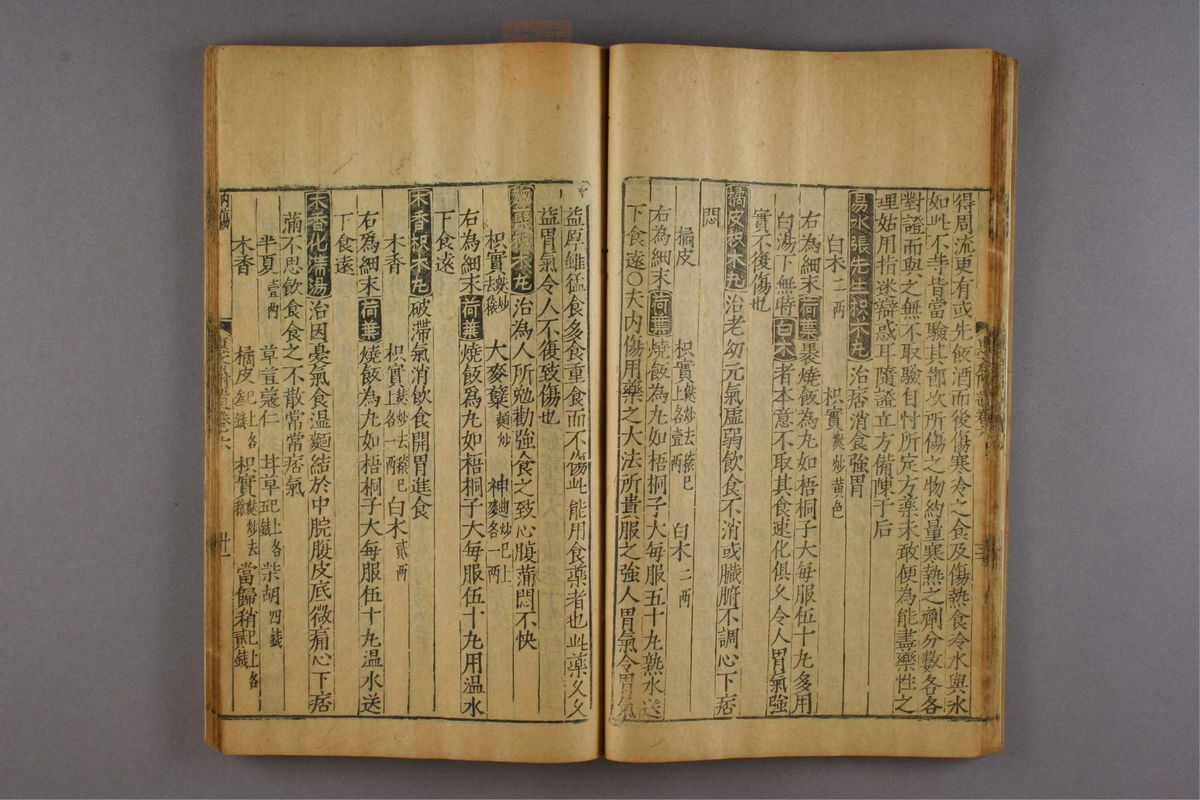 得周流更有或先飲酒而後傷寒冷之食及傷熱食冷水與水
如此不等皆當驗其節次所傷之物約量寒熱之劑分數各各
對證而與之無不取驗自忖所定方藥未敢便為能盡藥性之
理姑用指迷辯惑耳隨證立方備陳于后
易水張先生枳木丸治痞消食強胃
白木二兩 枳實麩炒黃色一兩
右為細末荷葉裹燒飯為丸如梧桐子大每服伍十丸多用
白湯下無時白木者本意不取其食速化但久令人胃氣強
實不復傷也
橘皮枳木丸治老幼元氣虛弱飲食不消或臟腑不調心下痞
悶
橘皮 枳實麩炒去穰已上各壹兩 白木二兩
右為細末荷葉燒飯為丸如梧桐子大每服五十丸熟水送
下食遠○夫內傷用藥之大法所貴服之強人胃氣令胃氣
益厚雖猛食多食重食而不傷此能用食藥者也此藥久久
益胃氣令人不復致傷也
麴蘗枳木丸治為人所勉勸強食之致心腹滿悶不快
枳實麩炒去穰 大麥蘗麵炒 神麴炒已上各一兩
右為細末荷葉燒飯為丸如梧桐子大每服伍十丸用温水
下食遠
木香枳木丸破滯氣消飲食開胃進食
木香 枳實麩炒去穰已上各一兩 白木貳兩
右為細末荷葉燒飯為丸如梧桐子大每服伍十丸温水送
下食遠
木香化滯湯治因憂氣食温麵結於中脘腹皮底微痛心下痞
滿不思飲食食之不散常常痞氣
半夏壹兩 草荳蔻仁 甘草已上各 柴胡四錢
木香 橘皮已上各叁錢 枳實麩炒去穰 當歸稍已上各貳錢
內傷
十一